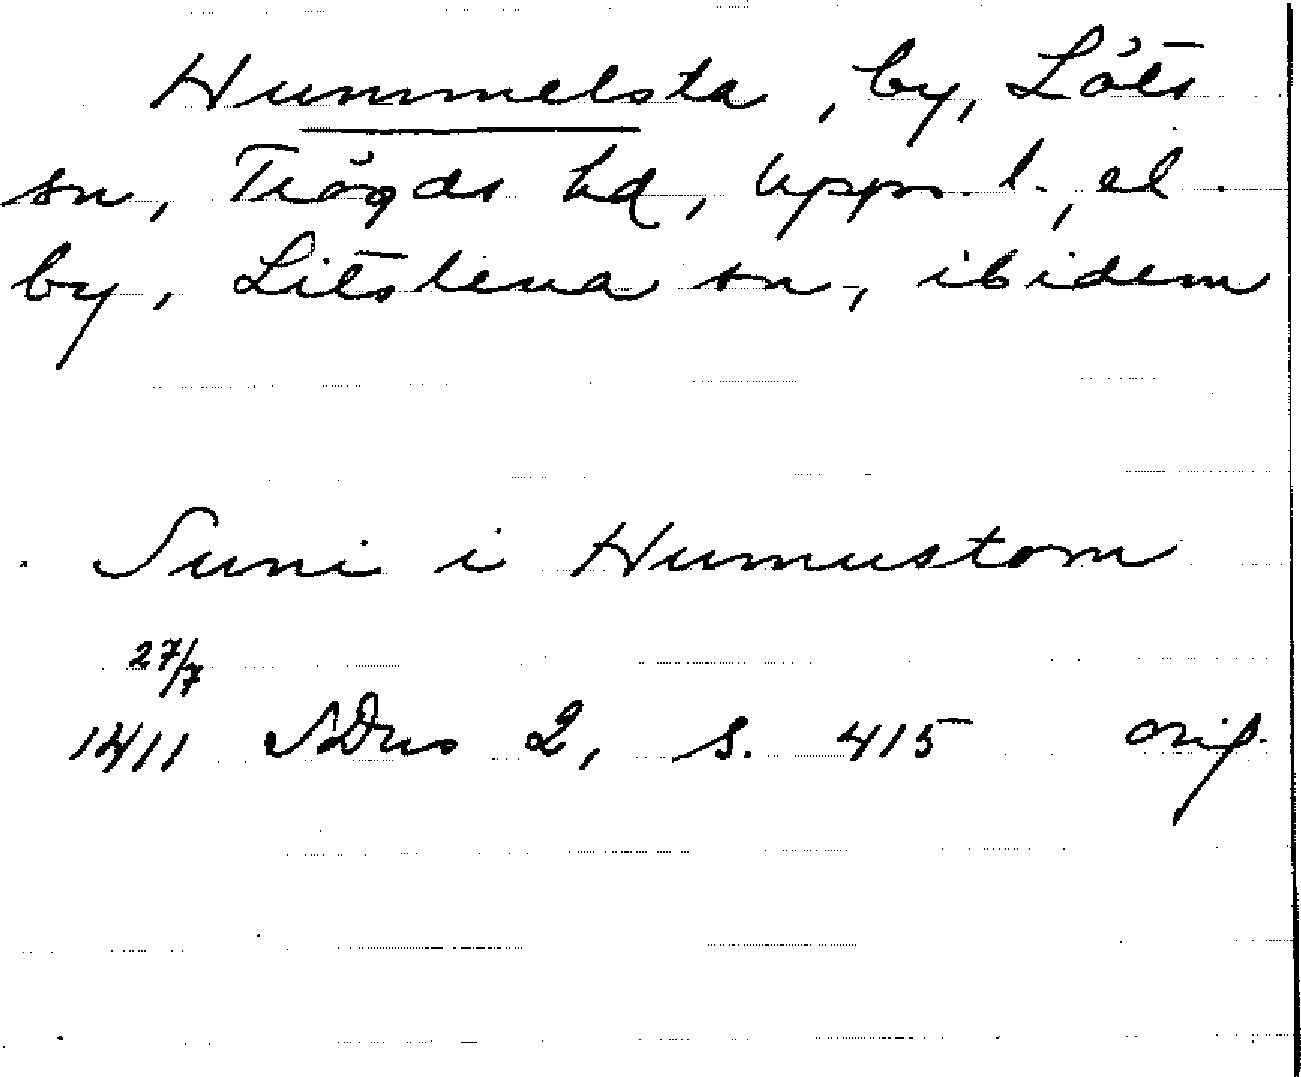 Hummelsta, by, Löts
sn, Trögds hd, Upps. l., el.
by, Litslena sn, ibidem
Suni i Humustom
27/7
1411 SDns 2, s. 415 orig.